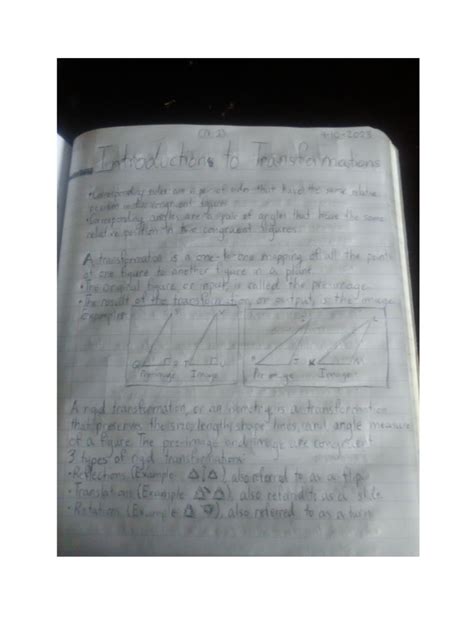 4-10-2023
Introductions to Transformations
• Corresponding sides are a pair of sides that have the same relative
position in two congruent figures
• Corresponding angles are a pair of angles that have the same
relative position in two congruent figures
A transformation is a one-to-one mapping of all the points
of one figure to another figure in a plane.
• The original figure, or input, is called the pre-image.
• The result of the transformation, or output, is the image.
Examples:
Preimage Image Pre image Image
A rigid transformation, or an isometry, is a transformation
that preserves the size, length, shape, lines, and angle measure
of a figure. The pre-image and image are congruent
3 types of rigid transformations:
• Reflections (Example: ), also referred to as a flip
• Translations (Example ), also referred to as a slide
• Rotations (Example ), also referred to as a turn